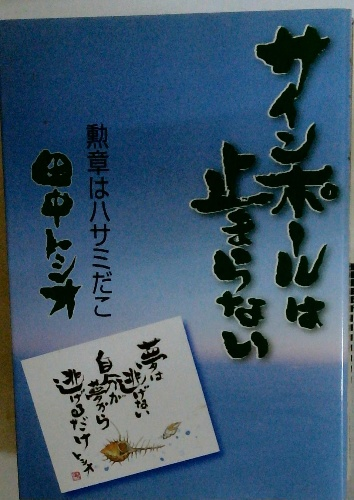 サインポールは
止まらない
勲章はハサミだこ
田中トシオ
夢は
逃げない
自分が
夢から
逃げるだけ
トシオ